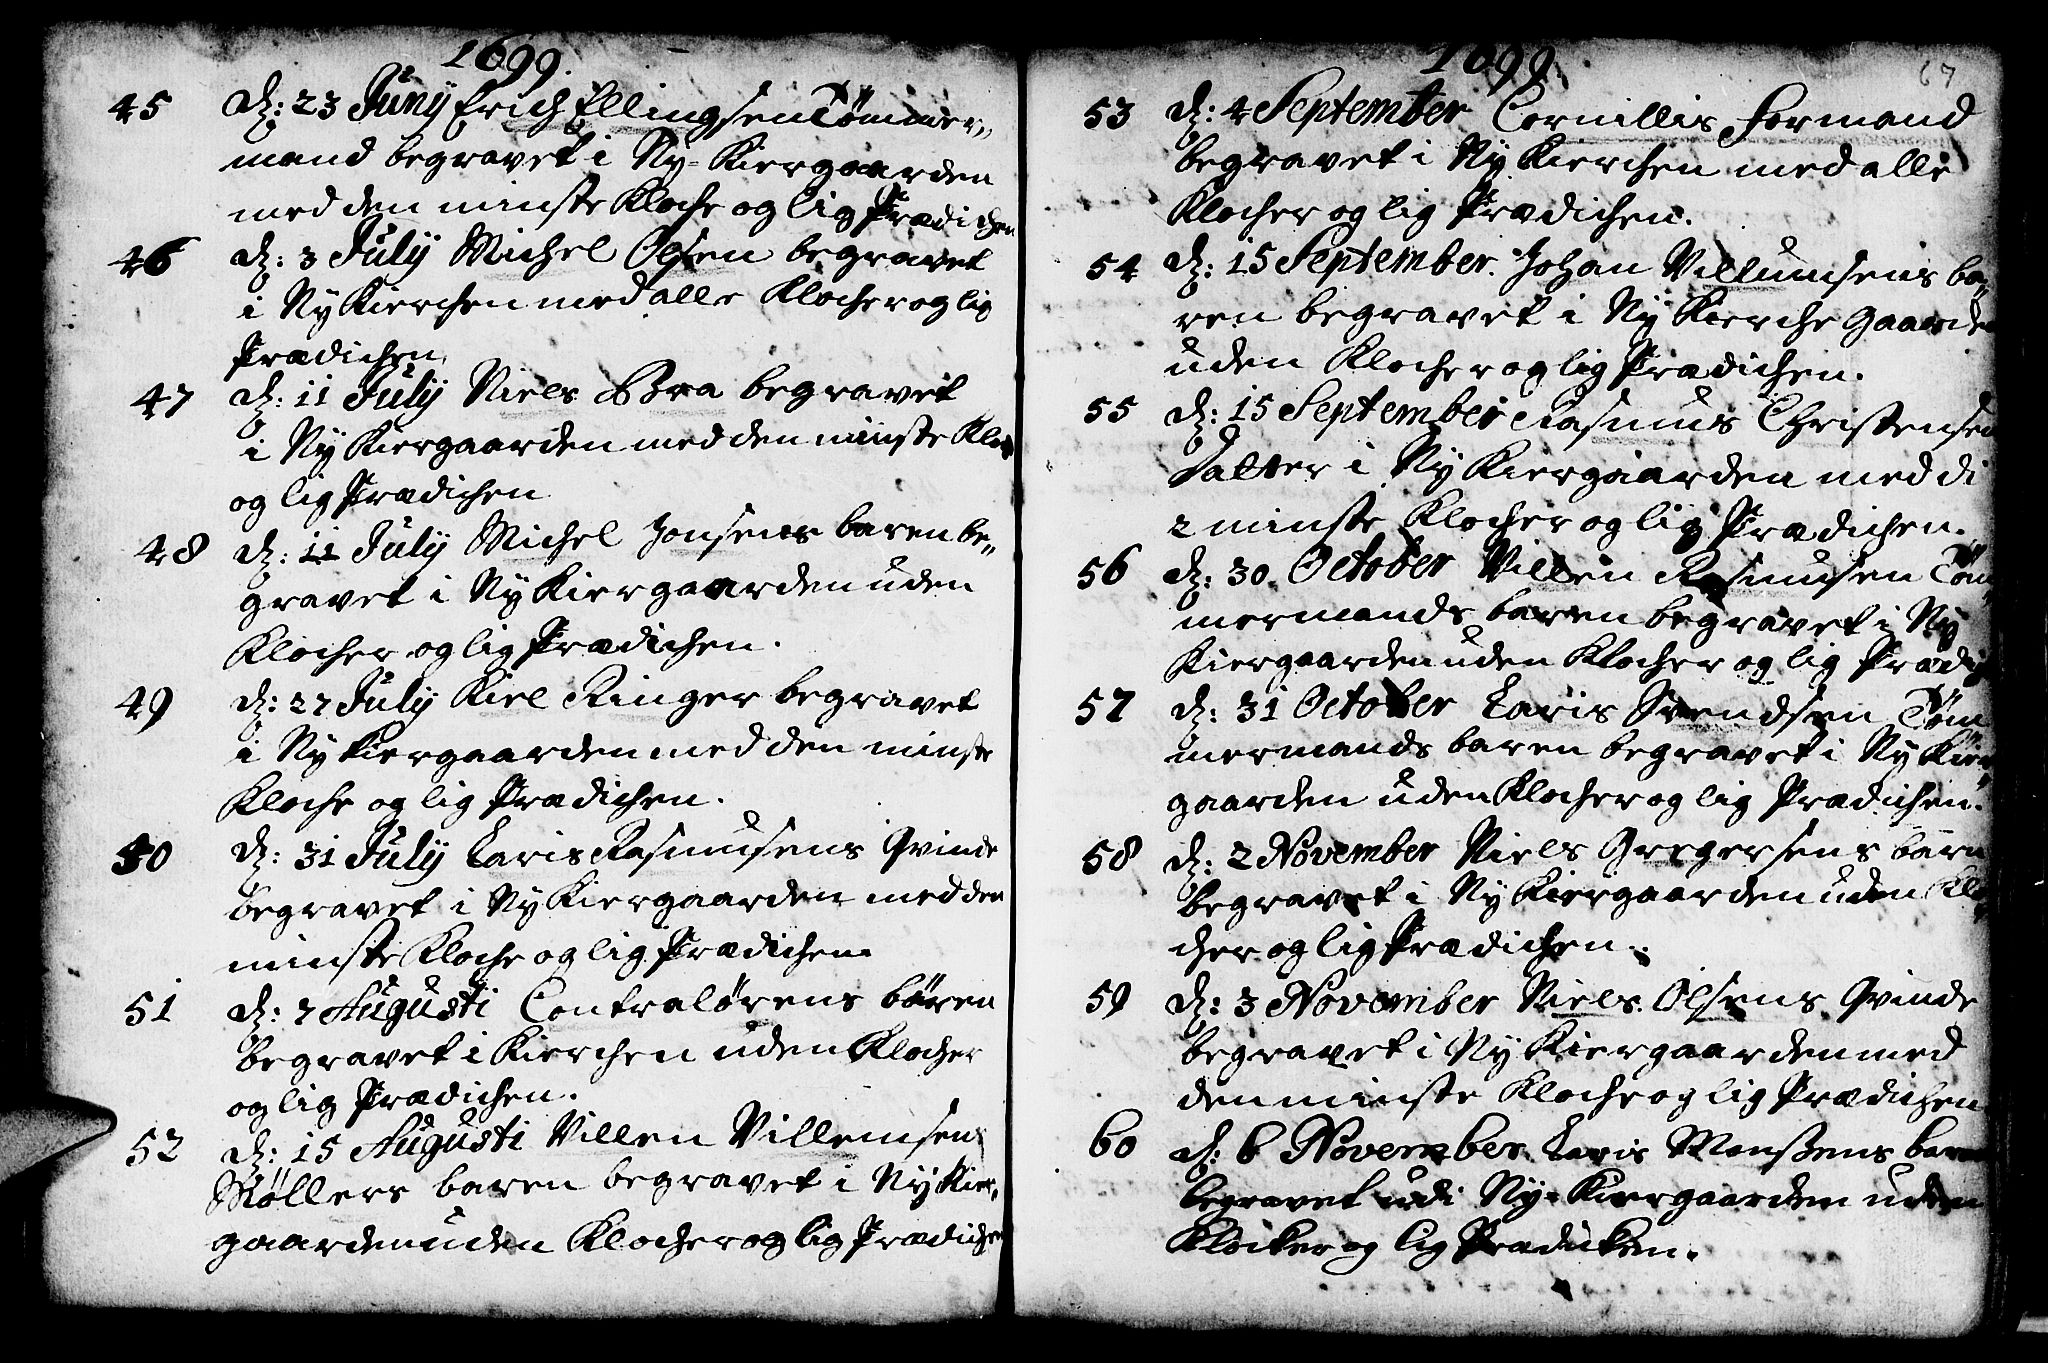 1699.
45 d: 23 Junÿ Erich Ellingsen Tömmer„
mand begravet i Nÿ-Kiergaarden
med den minste Kloche og lig Prædichen
46 d: 3 Julÿ Michel Olsen begravet
i Nÿ Kierchen med alle Klocher og lig
Prædichen.
47 d: 11 Julÿ Niels Bra begravet
i Nÿ Kiergaarden med den minste Kloc
og lig Prædichen
48 d: 11 Julÿ Michel Jonsens baren be„
gravet i Nÿ Kiergaarden uden
Klocher og lig Prædichen.
49 d: 27 Julÿ Kiel Ringer begravet
i Nÿ Kiergaarden med den minste
Kloche og lig Prædichen.
50 d: 31 Julÿ Laris Rasmusens Qvinde
begravet i Nÿ Kiergaarden med den
minste Kloche og lig Prædichen
51 d: 7 Augusti Contralörens bören
begravet i Kierchen uden Klocher
og lig Prædichen.
52 d: 15 Augusti Villem Villemsen
Möllers baren begravet i Nÿ Kier„
gaarden uden Klocher og lig Prædichen
1699. 67
53 d: 4 September Cornillis Formand
begravet i Nÿ Kierchen med alle
Klocher og lig Prædichen.
54 d: 15 September. Johan Villumsens ba„
ren begravet i Nÿ Kierche Gaarden
uden Klocher og lig Prædichen.
55 d: 15 September Rasmus Christensen
Datter i Nÿ Kiergaarden med di
2 minste Klocher og lig Prædichen.
56 d: 30. October Villen Rasmusen Töm„
mermands baren begravet i Nÿ
Kiergaarden uden Klocher og lig Prædich
57 d: 31 October Laris Svendsen Töm„
mermands baren begravet i Nÿ Kier„
gaarden uden Klocher og lig Prædichen.
58 d: 2 November Niels Gregersens barn
begravet i Nÿ Kiergaarden uden Klo„
cher og lig Prædichen.
59 d: 3 November Niels Olsens Qvinde
begravet i Nÿ Kiergaarden med
den minste Kloche og lig Prædichen
60 d: 6 November Laris Monßens baren
begravet udi Nÿ-Kiergaarden uden
Klocker og lig Prædicken.